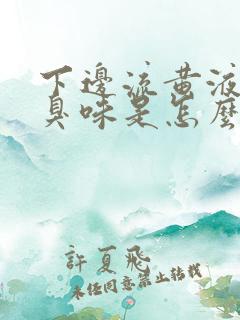 下邊流黃液
臭味是怎麼
許夏飛
未經同意禁止轉載